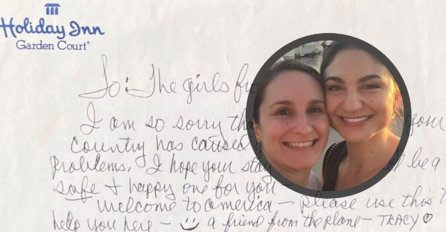 Holiday Inn
Garden Court®
To: The girls fr
I am so sorry tha your
country has caused
problems. I hope your stay be a
safe & happy one for you
Welcome to America – please use this t
help you here – a friend from the plane – TRACY